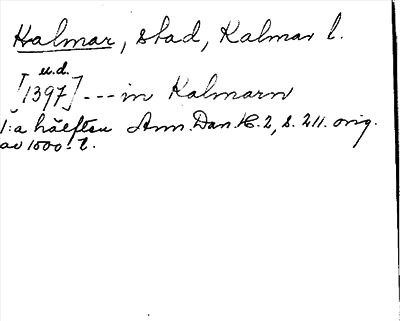 Kalmar, stad, Kalmar l.
u.d.
[1397] --- in Kalmarn
1:a hälften Ann. Dan. H. 2, s. 211. orig.
av 1500-t.